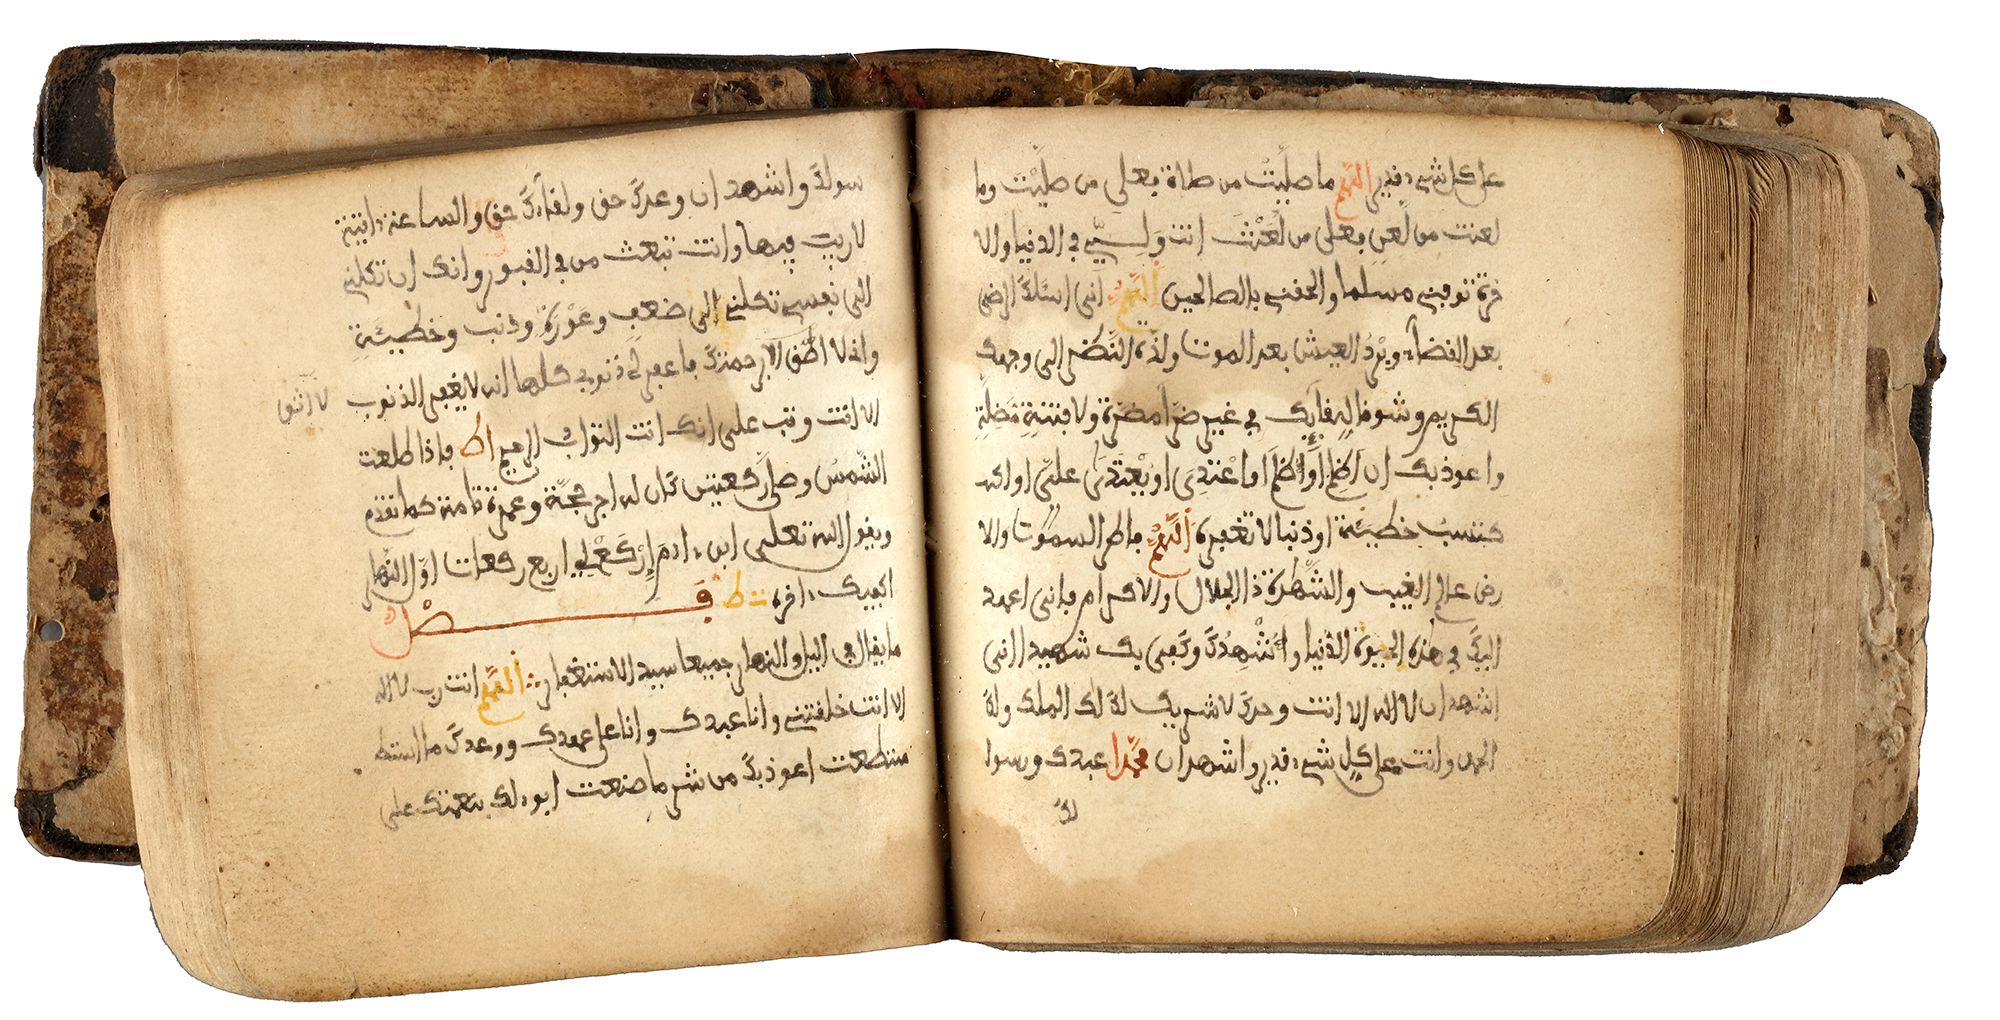 على كل شيء قدير اللهم ما صليت من صلاة فعلى من صليت وما
لعنت من لعن فعلى من لعنت انت وليي في الدنيا والا
خرة توفني مسلما والحقني بالصالحين اللهم اني اسئلك الرضى
بعد القضاء وبرد العيش بعد الموت ولذة النظر الى وجهك
الكريم وشوقا الى لقايك في غير ضراء مضرة ولا فتنة مضلة
واعوذ بك ان اظلم أو أظلم او اعتدي او يعتدى علي او اك
كتسب خطيئة او ذنبا لا تغفره اللهم فاطر السموت والا
رض عالم الغيب والشهدة ذا الجلال والاكرام فاني اعهد
اليك في هذه الحيوة الدنيا واشهدك وكفى بك شهيدا اني
اشهد ان لا اله الا انت وحدك لا شريك لك لك الملك ولك
الحمد وانت على كل شيء قدير واشهد ان محمدا عبدك ورسوا
لك
سولك واشهد ان وعدك حق ولقاءك حق والساعة ءاتية
لا ريب فيها وانت تبعث من في القبور وانك ان تكلني
الى نفسي تكلني الى ضعف وعورة وذنب وخطيئة
واني لا اثق الا برحمتك فاغفر لي ذنوبي كلها انه لا يغفر الذنوب
لا اثق
الا انت وتب علي انك انت التواب الرحيم اط فاذا طلعت
الشمس وصلى ركعتين كان له اجر حجة وعمرة تامة كما تقدم
ويقول الله تعلى ابن ءادم اركع لي اربع ركعات اول النهار
اكفيك ءاخره ت ط فصل
ما يقال في اليل والنهار جميعا سيد الاستغفار اللهم انت رب لا اله
الا انت خلقتني وانا عبدك وانا على عهدك ووعدك ما استط
ستطعت اعوذ بك من شر ما صنعت ابوء لك بنعمتك علي